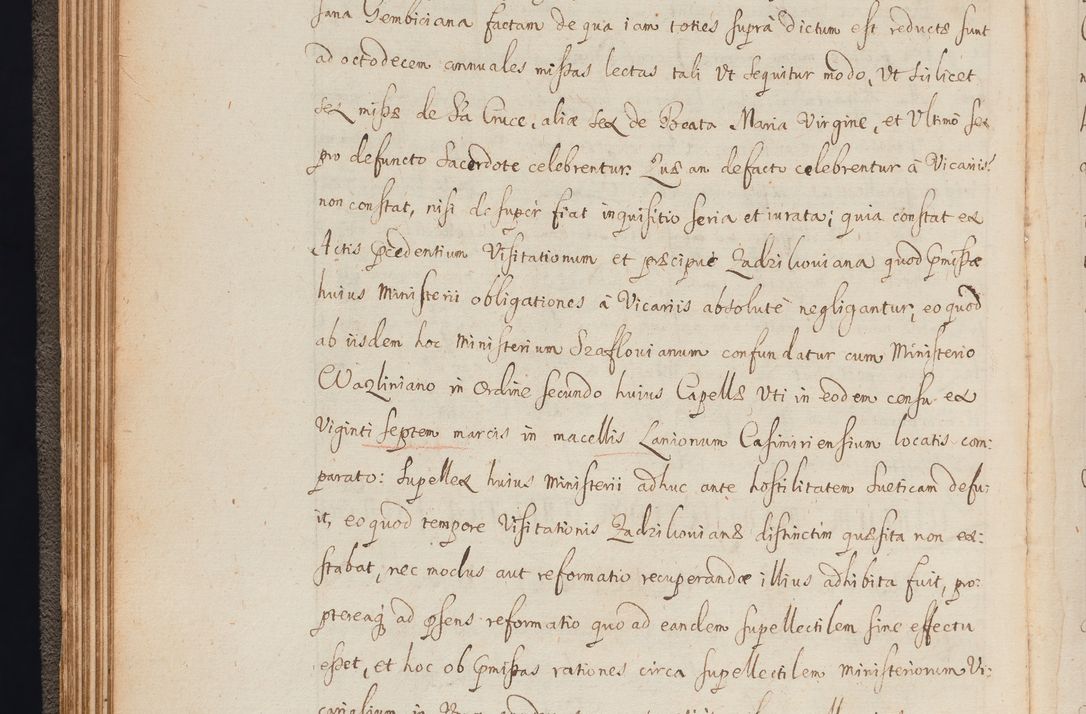 sana Gembiciana factam de qua iam toties suprà dictum est reductæ sunt
ad octodecem annuales missas lectas tali Ut sequitur modo, Ut scilicet
sex missæ de Sta Cruce, aliæ sex de Beata Maria Virgine, et Ultimò sex
pro defuncto Sacerdote celebrentur. Quæ an defacto celebrentur à Vicariis
non constat, nisi desuper fiat inquisitio seria et iurata; quia constat ex
Actis prcedentium Visitationum et præcipuè Zadzikoviana quod pmissæ
huius Ministerii obligationes à Vicariis absolutè negligantur, eo quod
ab iisdem hoc Ministerium Szaflovianum confundatur cum Ministerio
Wazliniano in Ordine secundo huius Capellæ Uti in eodem censu ex
Viginti septem marcis in macellis Lanionum Casimiriensium locatis com:
parato: Supellex huius Ministerii adhuc ante hostilitatem Sueticam defu:
it, eo quod tempore Visitationis Zadzikovianæ distinctim quæsita non ex:
stabat, nec modus aut reformatio recuperandæ illius adhibita fuit, pro:
ptereaq ad psens reformatio quo ad eandem supellectilem sine effectu
esset, et hoc ob pmissas rationes circa supellectilem Ministeriorum Vi:
carialium in